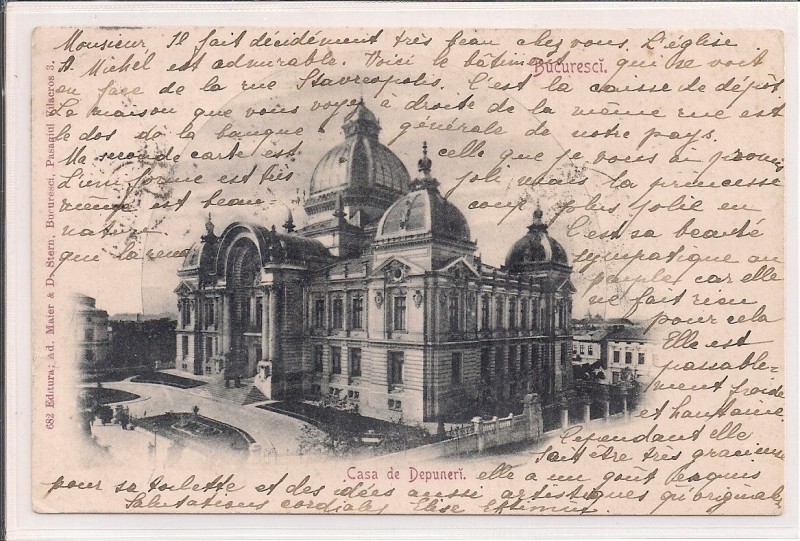 Monsieur, Il fait décidément très beau chez vous. L'église
St Michel est admirable. Voici le bâtiment qui se voit
Bucurescĭ.
en face de la rue Stavreopolis. C'est la caisse de dépôt
La maison que vous voyez à droite de la même rue est
le dos de la banque générale de notre pays.
Ma seconde carte est celle que je vous ai promis
L'uniforme est très joli mais la princesse
même est beau-coup plus jolie en
nature C'est sa beauté
qui la rend sympatique au
peuple car elle
ne fait rien
pour cela
Elle est
passable-
ment froide
et hautaine
Cependant elle
sait être très gracieuse
Casa de Depunerĭ.
elle a un goût exquis
pour sa toilette et des idées aussi artistiques qu'originales
Salutations cordiales Elise
682 Editura; ad. Maier & D. Stern, Bucurescĭ, Pasagiul Vilacros 3.